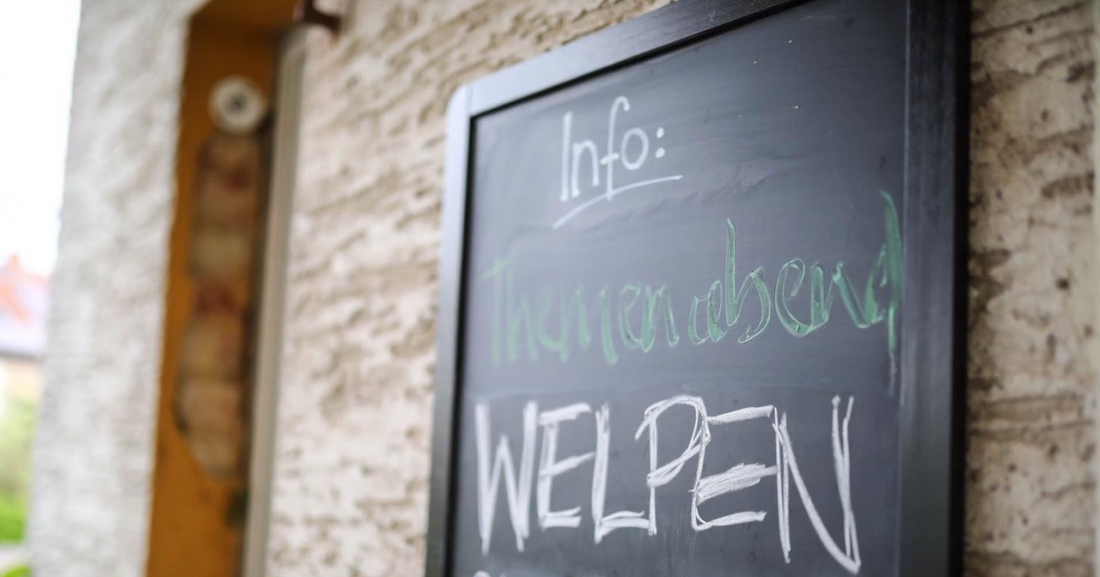 Info:
Themenabend
WELPEN